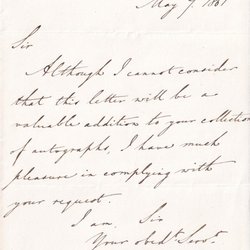 May 9. 1861
Sir
Although I cannot consider
that this letter will be a
valuable addition to your collection
of autographs, I have much
pleasure in complying with
your request.
I am. Sir
Your obedt. Servt.